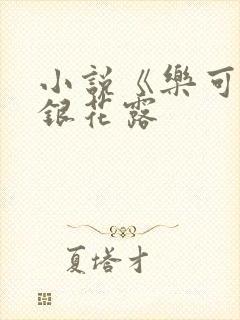 小說《樂可
銀花露
夏塔才